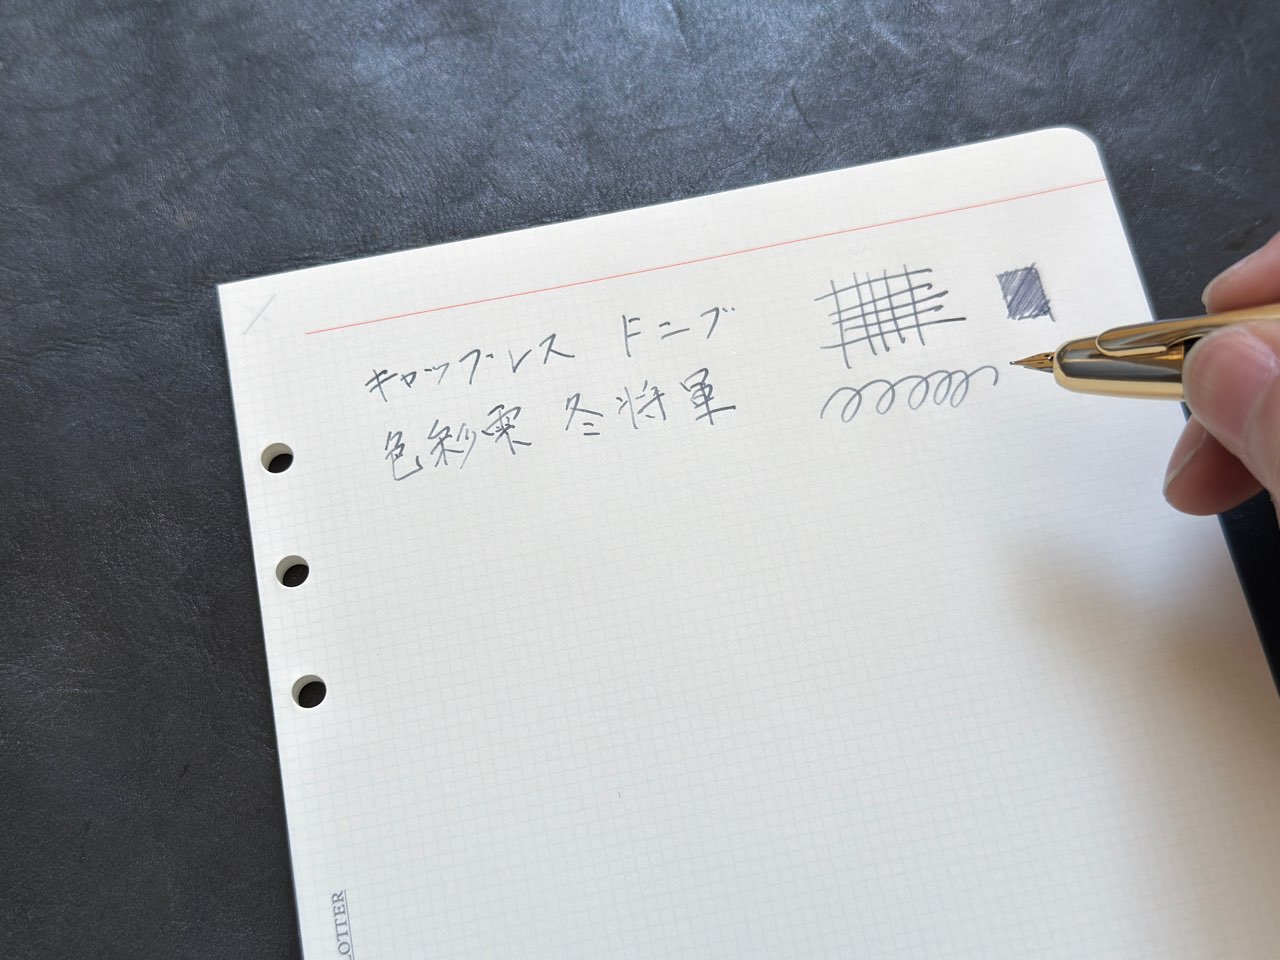 キャップレス ドニブ
色彩雫 冬将軍
OTTER